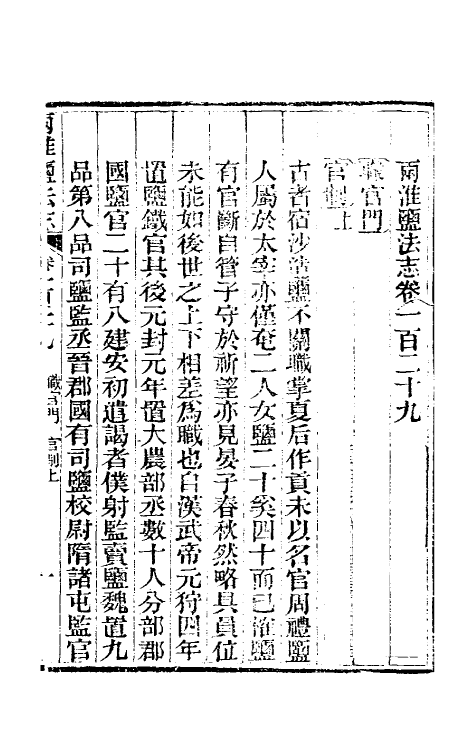 兩淮鹽法志卷一百二十九
職官門
官制上
古者宿沙煑鹽不關職掌夏后作貢未以名官周禮鹽
人屬於太宰亦僅奄二人女鹽二十奚四十而已海鹽
有官斷自管子守於祈望亦見晏子春秋然略具員位
未能如後世之上下相差為職也自漢武帝元狩四年
置鹽鐵官其後元封元年置大農部丞數十人分部郡
國鹽官二十有八建安初遣謁者僕射監賣鹽魏置九
品第八品司鹽監丞晉郡國有司鹽校尉隋諸屯監官
兩淮鹽法志 卷一百二十九 職官門 官制上 一